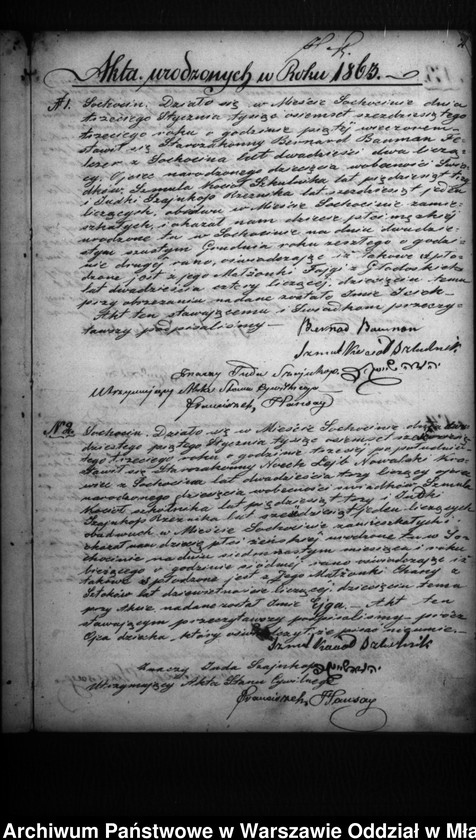 Akta urodzonych w Roku 1863.
N 1. Sochocin. Działo się w Mieście Sochocinie dnia
trzeciego Stycznia tysiąc ośmset sześćdziesiątego
trzeciego roku o godzinie piątej wieczorem
stawił się Starozakonny Bernard Bauman
z Sochocina lat dwadzieścia dwa liczą-
cy, Ojciec narodzonego dziecięcia w obecności Świad-
ków, Szmula Koział Szkulnika lat pięćdziesiąt trzy
i Judki Szajnkop Rzeznika lat sześćdziesiąt jeden
liczących, obudwu w Mieście Sochocinie zamie-
szkałych, i okazał nam dziecię płci męzkiej
urodzone tu w Sochocinie na dniu dwudzie-
stym szóstym Grudnia roku zeszłego o godzi-
nie drugiej rano, oświadczając iż takowe spło-
dzone jest z jego Małżonki Fajgi z
lat dwadzieścia cztery liczącej, dziecięciu temu
przy obrzezaniu nadane zostało Imie Icek.
Akt ten stawającemu i Świadkom przeczy-
tawszy podpisaliśmy
Bernad Bauman
Szmul Kozioł Szkulnik
znaczy Juda Szajnkop
Utrzymujący Akta Stanu Cywilnego
Franciszek
N 2. Sochocin. Działo się w Mieście Sochocinie dnia dwu-
dziestego piątego Stycznia tysiąc ośmset sześćdziesią-
tego trzeciego roku o godzinie trzeciej po południu
Stawił się Starozakonny Nosek Lejb Nowalski
z Sochocina lat dwadzieścia trzy liczący ojciec
narodzonego dziecięcia w obecności świadków Szmula
Kozieł szkolnika lat pięćdziesiąt trzy i Judki
Szajnkop Rzeznika lat sześćdziesiąt jeden liczących
obudwuch w Mieście Sochocinie zamieszkałych i
okazał nam dziecię płci żeńskiej urodzone tu w So-
chocinie na dniu siedmnastym miesiąca i roku
bieżącego o godzinie siódmej rano oświadczając iż
takowe spłodzone jest z Jego Małżonki Chany z
lat dziewiętnaście liczącej, dziecięciu temu
przy Akcie nadane zostało Imie Ejga. Akt ten
stawającym przeczytawszy podpisaliśmy prócz
Ojca dziecka, który oświadczył iż pisać nieumie.
Szmul Kozioł Szkulnik
znaczy Juda Szajnkop
Utrzymujący Akta Stanu Cywilnego
Franciszek
Archiwum Państwowe w Warszawie Oddział w Mła